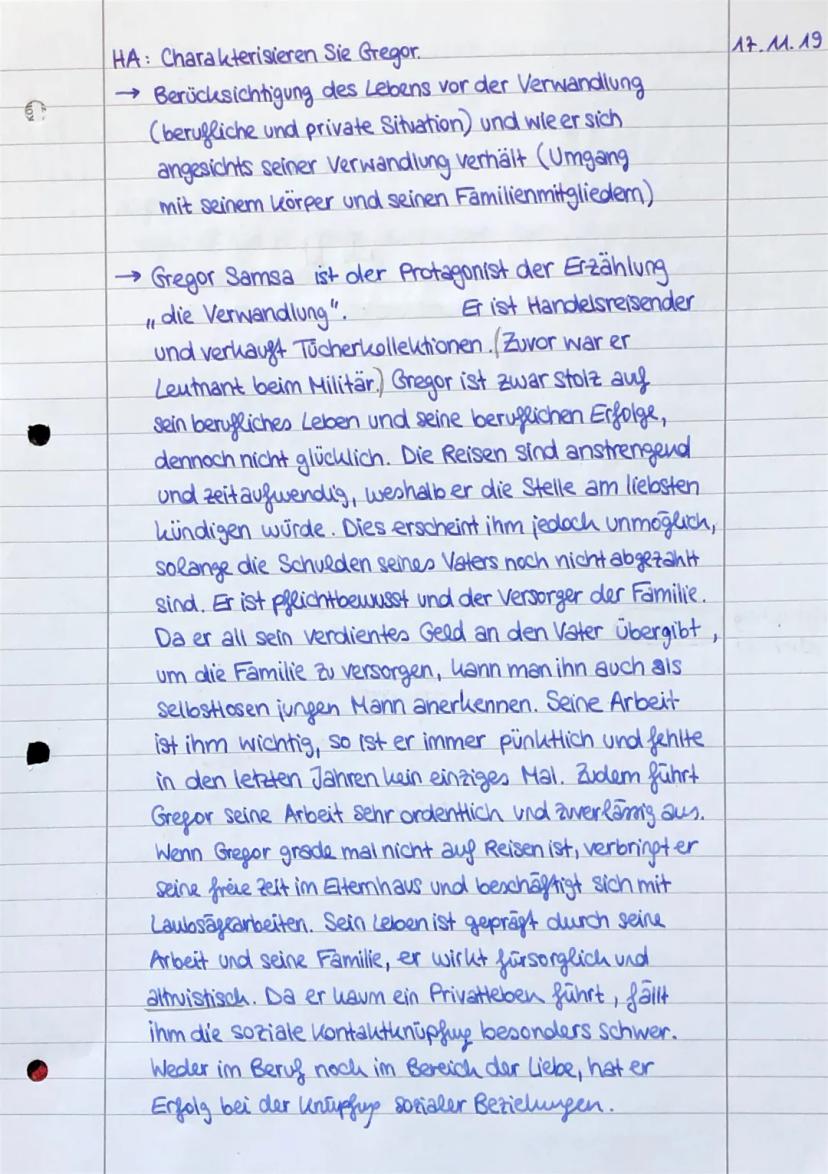 17.11.19
HA: Charakterisieren Sie Gregor.
→ Berücksichtigung des Lebens vor der Verwandlung
(berufliche und private Situation) und wie er sich
angesichts seiner Verwandlung verhält (Umgang
mit seinem Körper und seinen Familienmitgliedern)
→ Gregor Samsa ist der Protagonist der Erzählung
„die Verwandlung". Er ist Handelsreisender
und verkauft Tücherkollektionen. (Zuvor war er
Leutnant beim Militär.) Gregor ist zwar stolz auf
sein berufliches Leben und seine beruflichen Erfolge,
dennoch nicht glücklich. Die Reisen sind anstrengend
und zeitaufwendig, weshalb er die Stelle am liebsten
kündigen würde. Dies erscheint ihm jedoch unmöglich,
solange die Schulden seines Vaters noch nicht abgezahlt
sind. Er ist pflichtbewusst und der Versorger der Familie.
Da er all sein verdientes Geld an den Vater übergibt,
um die Familie zu versorgen, kann man ihn auch als
selbstlosen jungen Mann anerkennen. Seine Arbeit
ist ihm wichtig, so ist er immer pünktlich und fehlte
in den letzten Jahren kein einziges Mal. Zudem führt
Gregor seine Arbeit sehr ordentlich und zuverlässig aus.
Wenn Gregor grade mal nicht auf Reisen ist, verbringt er
seine freie Zeit im Elternhaus und beschäftigt sich mit
Laubsägearbeiten. Sein Leben ist geprägt durch seine
Arbeit und seine Familie, er wirkt fürsorglich und
altruistisch. Da er kaum ein Privatleben führt, fällt
ihm die soziale Kontaktknüpfug besonders schwer.
Weder im Beruf noch im Bereich der Liebe, hat er
Erfolg bei der Knüpfung sozialer Beziehungen.